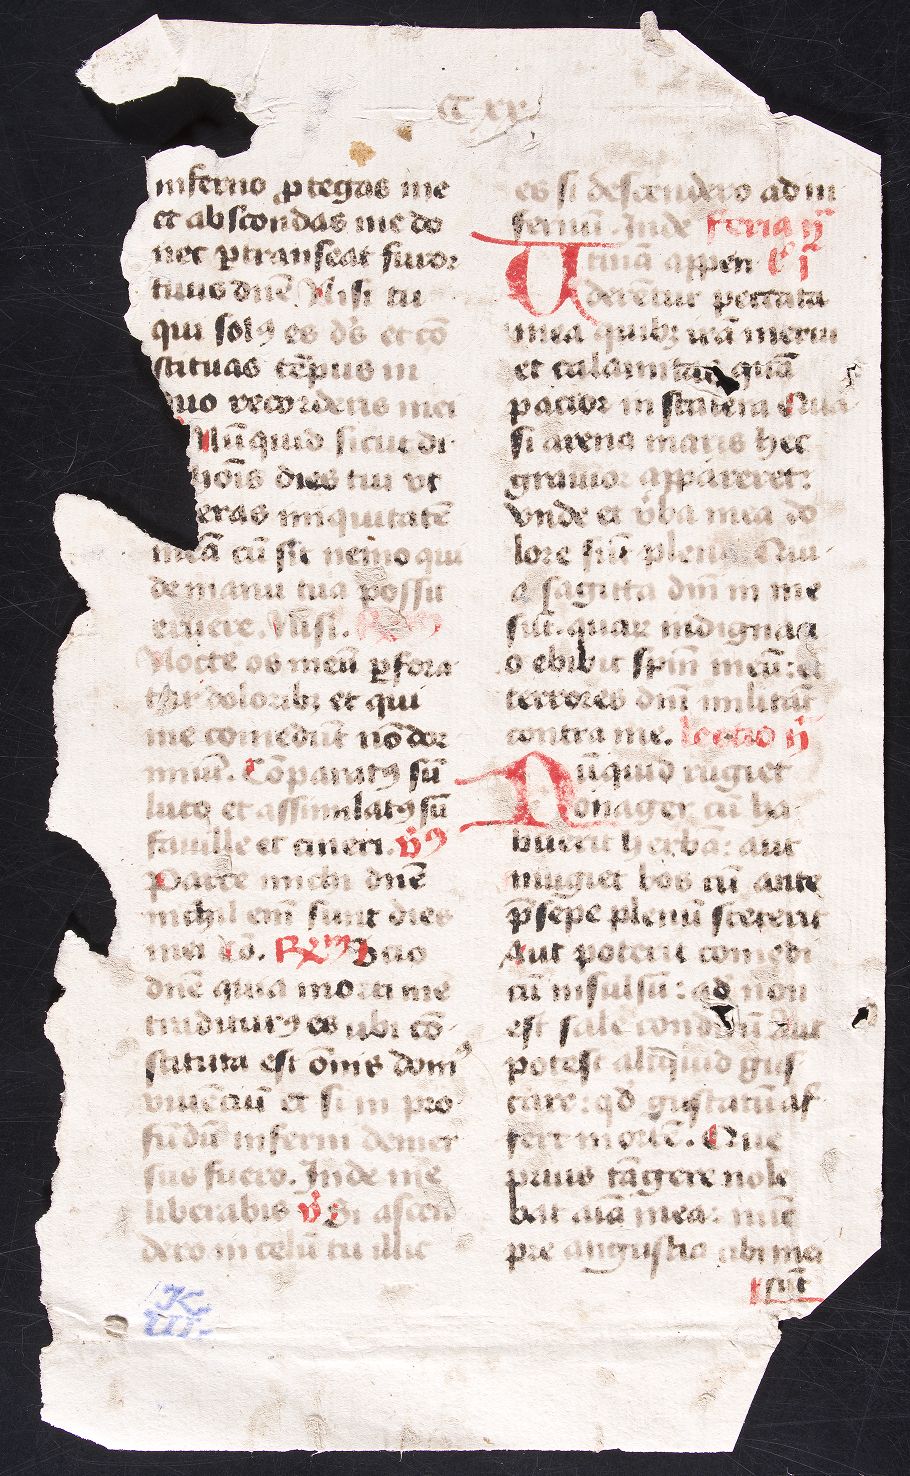 C xx
inferno ꝓtegas me
et abscondas me do
nec ꝑtranseat furor
tuus dn̄e Nisi tu
qui solꝰ es ds̄ et cō
stituas tēpus in
quo recorderis mei
Nūquid sicut di
hoīs dies tui vt
eras iniquitatē
meā cū sit nemo qui
de manu tua possit
eruere. Nisi.
Nocte os meū ꝑfora
tur doloribꝫ et qui
me comedūt nō dor
miūt. Cōparatꝰ sū
luto et assimilatꝰ sū
fauille et cineri. v̄s
Parce michi dn̄e
nichil enī sunt dies
mei Cō. Rx̄m Scio
dn̄e quia morti me
traditurꝰ es vbi cō
stituta est om̄is domꝰ
viuēciū et si in pro
fūdū inferni demer
sus fuero. Inde me
liberabis v̄s Si ascen
dero in celū tu illic
es si descendero ad in
fernū. Inde feria ij
Utinā appen l̄ i
derētur peccata
mea quibꝫ irā merui
et calamitas quā
pacior in statera Qua
si arena maris hec
grauior appareret:
vnde et v̄ba mea do
lore sūt plena. Qui
a sagitta dn̄i in me
sūt. quaꝝ indignaci
o ebibit spm̄ meū: et
terrores dn̄i militāt
contra me. lectio ij
Nūquid rugiet
onager cū ha
buerit herbā: aut
mugiet bos cū ante
p̄sepe plenū steterit
Aut poterit comedi
cū insulsū: qd̄ non
est sale conditū Aut
potest aliquid gus
tare: qd̄ gustatū af
fert mortē. Que
prius tāgere nole
bat aīa mea: nūc
pre angustia cibi mei
sūt
K.